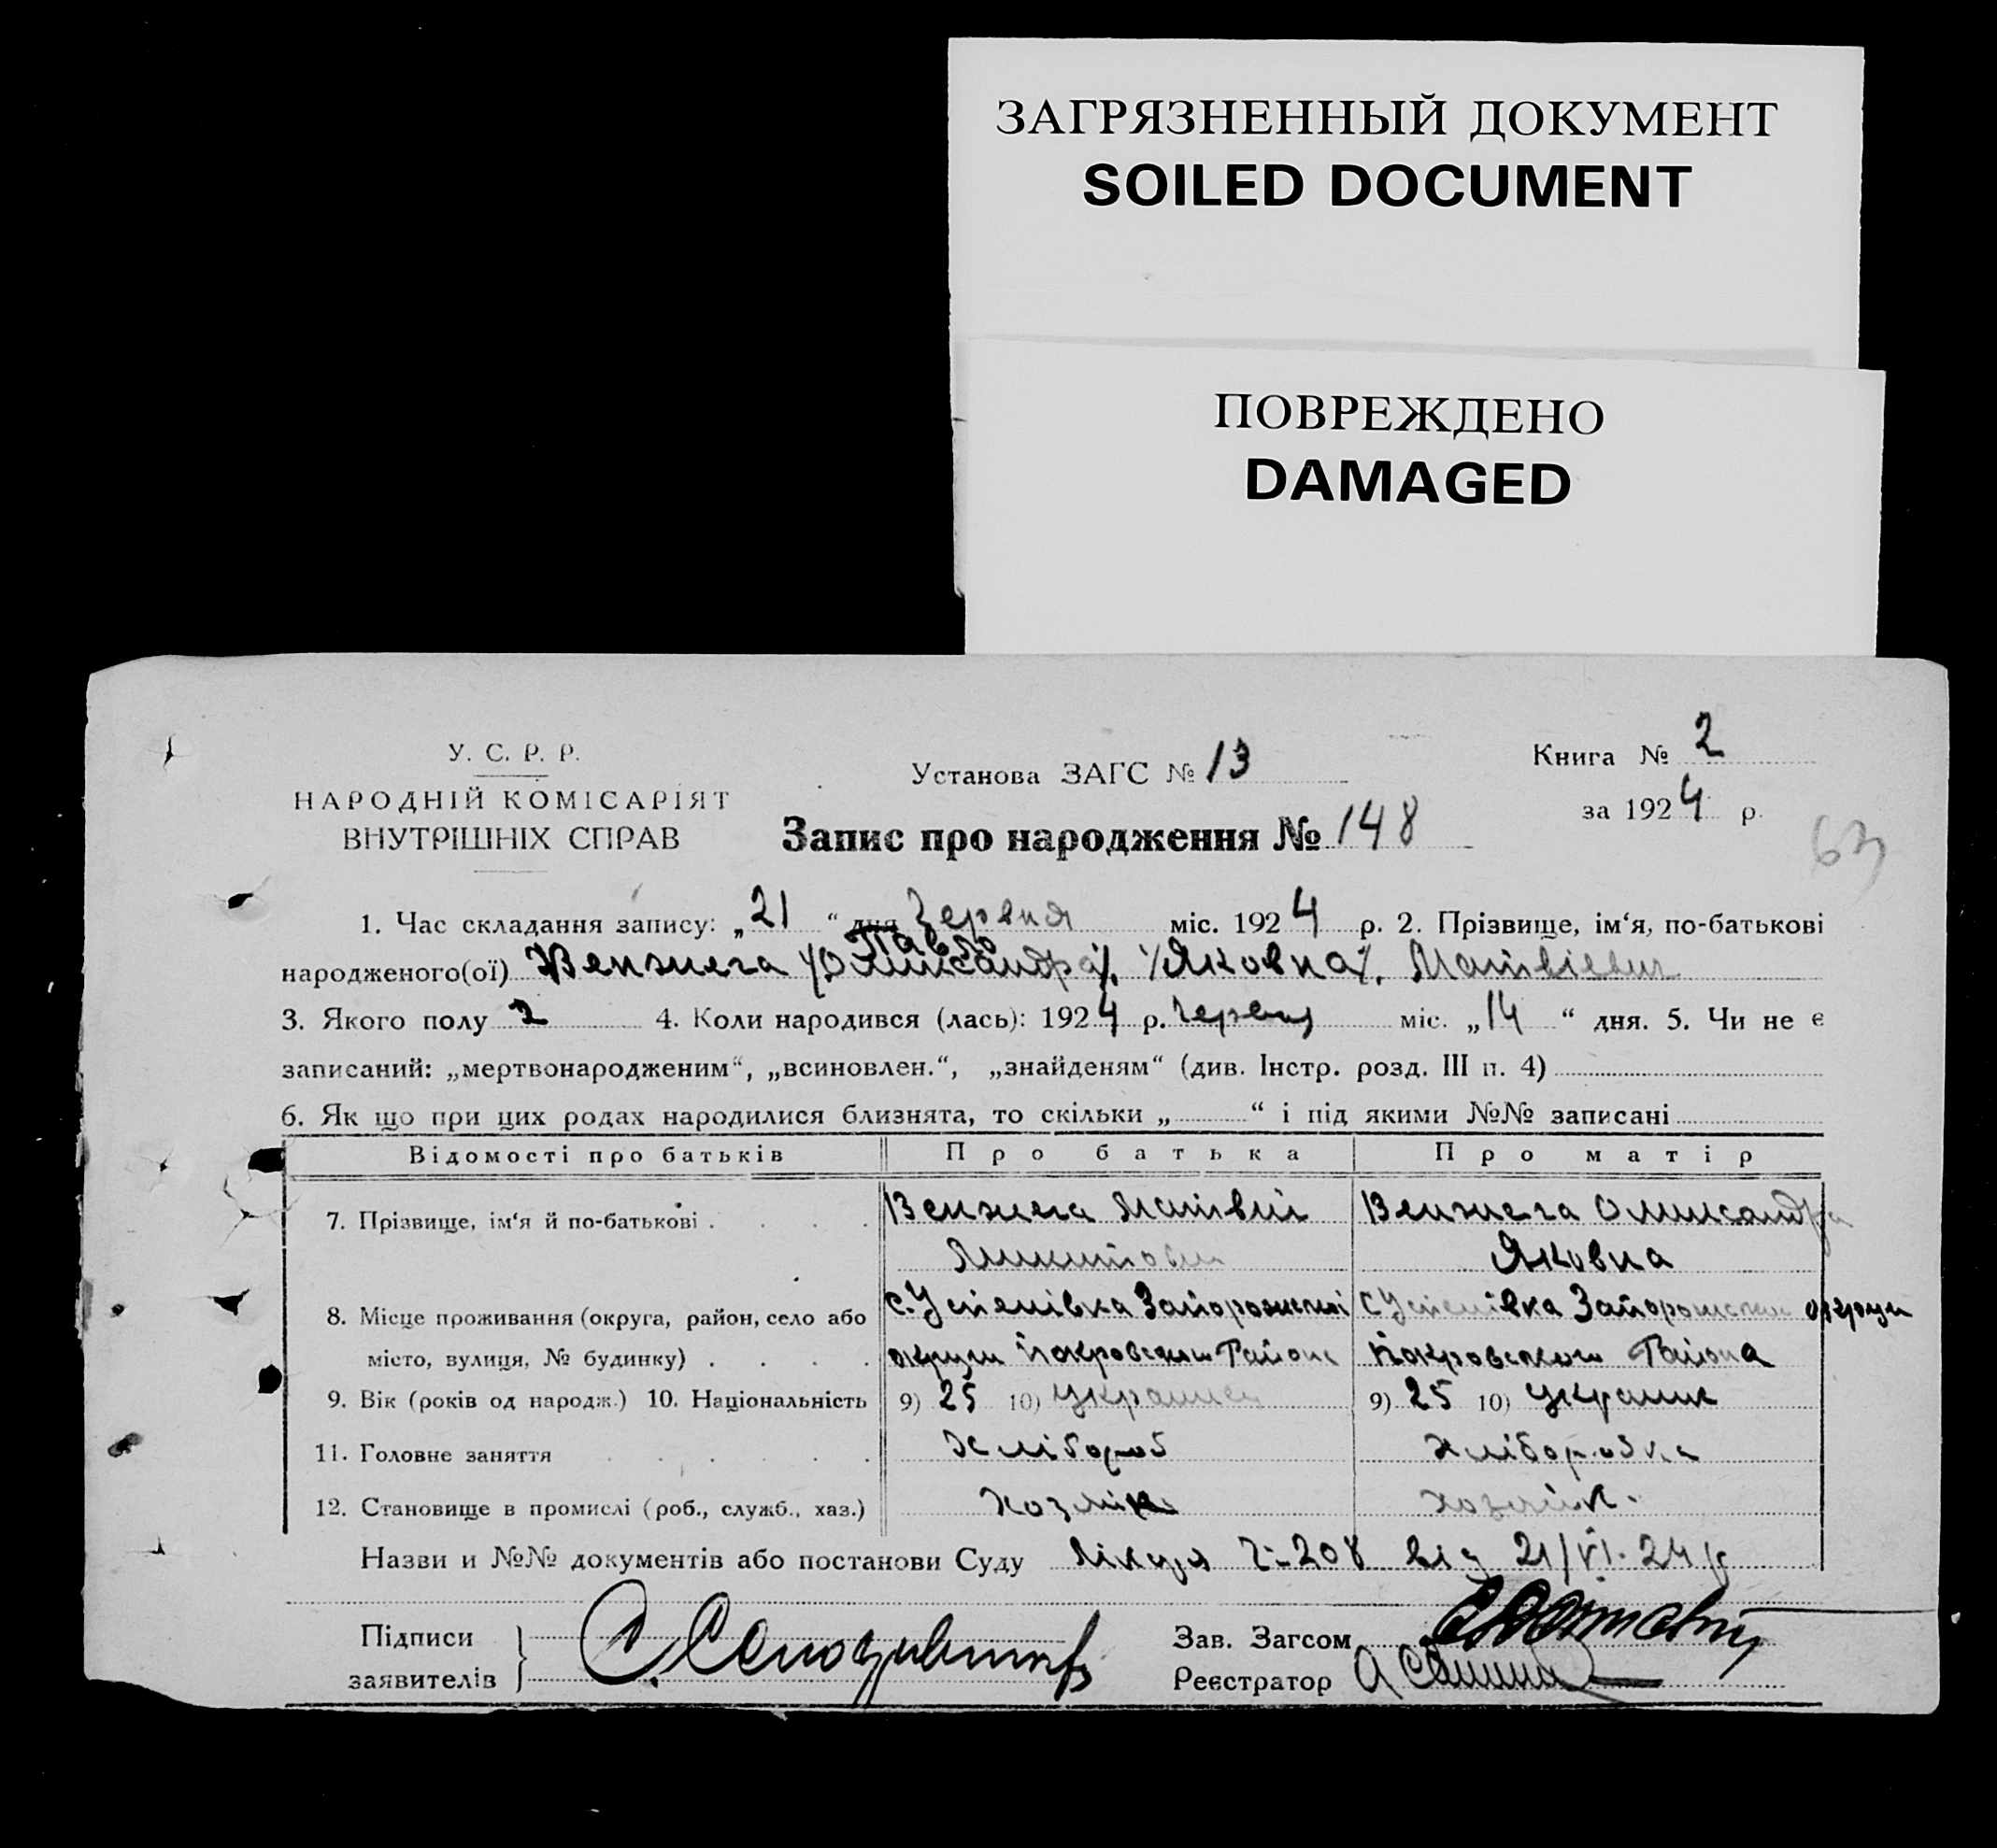 ЗАГРЯЗНЕННЫЙ ДОКУМЕНТ
SOILED DOCUMENT
ПОВРЕЖДЕНО
DAMAGED
У. С. Р. Р.
НАРОДНІЙ КОМІСАРІЯТ
ВНУТРІШНІХ СПРАВ
Установа ЗАГС № 13
Запис про народження № 148
Книга № 2
за 1924 р.
63
1. Час складання запису: „21“ дня Червня міс. 1924 р. 2. Прізвище, ім‘я, по-батькові
Павло
народженого(ої) Венжега (Оликсандра). (Яковна). Матвіевич
3. Якого полу 2 4. Коли народився (лась): 1924 р. Червня міс. „14“ дня. 5. Чи не є
записаний: „мертвонародженим“, „всиновлен.“, „знайденям“ (див. Інстр. розд. III п. 4)
6. Як що при цих родах народилися близнята, то скільки „ “ і під якими №№ записані
Відомості про батьків Про батька Про матір
7. Прізвище, ім‘я й по-батькові . . . . Венжега Матвій Венжега Оликсандра
Микитович Яковна
8. Місце проживання (округа, район, село або с. Успенівка Запорожської с Успенівка Запорожської округи
місто, вулиця, № будинку) . . . . округи Покровського Района Покровського Района
9. Вік (років од народж.) 10. Національність 9) 25 10) Украинец 9) 25 10) Украинк
11. Головне заняття . . . . . Хлібороб Хліборобка
12. Становище в промислі (роб., служб., хаз.) Хозяїн Хозяїн.
Назви и №№ документів або постанови Суду Лікаря Ч-208 від 21/VI-24 р
Підписи
заявителів
Зав. Загсом
Реєстратор